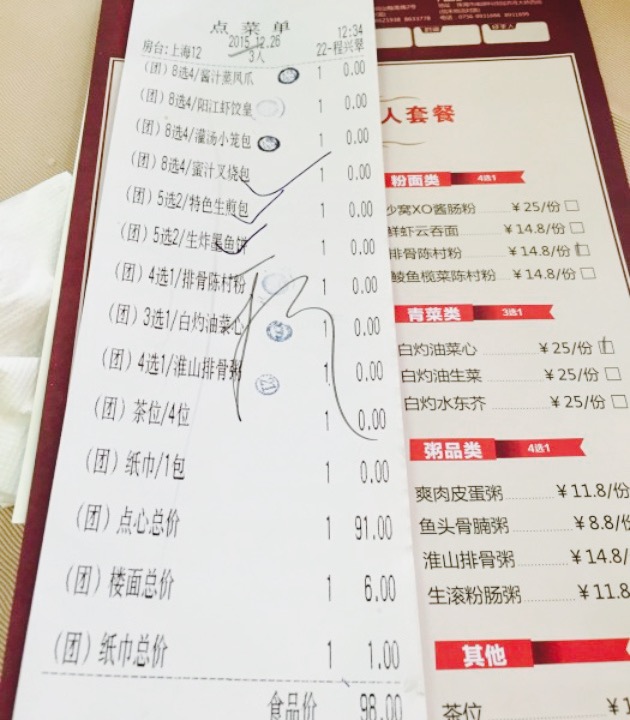 点菜单
2015.12.26 12:34
房台:上海12 3人 22-程兴翠
(团)8选4/酱汁蒸凤爪 1 0.00
(团)8选4/阳江虾饺皇 1 0.00
(团)8选4/灌汤小笼包 1 0.00
(团)8选4/蜜汁叉烧包 1 0.00
(团)5选2/特色生煎包 1 0.00
(团)5选2/生炸墨鱼饼 1 0.00
(团)4选1/排骨陈村粉 1 0.00
(团)3选1/白灼油菜心 1 0.00
(团)4选1/淮山排骨粥 1 0.00
(团)茶位/4位 1 0.00
(团)纸巾/1包 1 0.00
(团)点心总价 1 91.00
(团)楼面总价 1 6.00
(团)纸巾总价 1 1.00
食品价 98.00
人套餐
粉面类 4选1
沙窝XO酱肠粉 ¥25/份
鲜虾云吞面 ¥14.8/份
排骨陈村粉 ¥14.8/份
鲮鱼榄菜陈村粉 ¥14.8/份
青菜类 3选1
白灼油菜心 ¥25/份
白灼油生菜 ¥25/份
白灼水东芥 ¥25/份
粥品类 4选1
爽肉皮蛋粥 ¥11.8/份
鱼头骨腩粥 ¥8.8/份
淮山排骨粥 ¥14.8/
生滚粉肠粥 ¥11.8
其他
茶位 ¥1